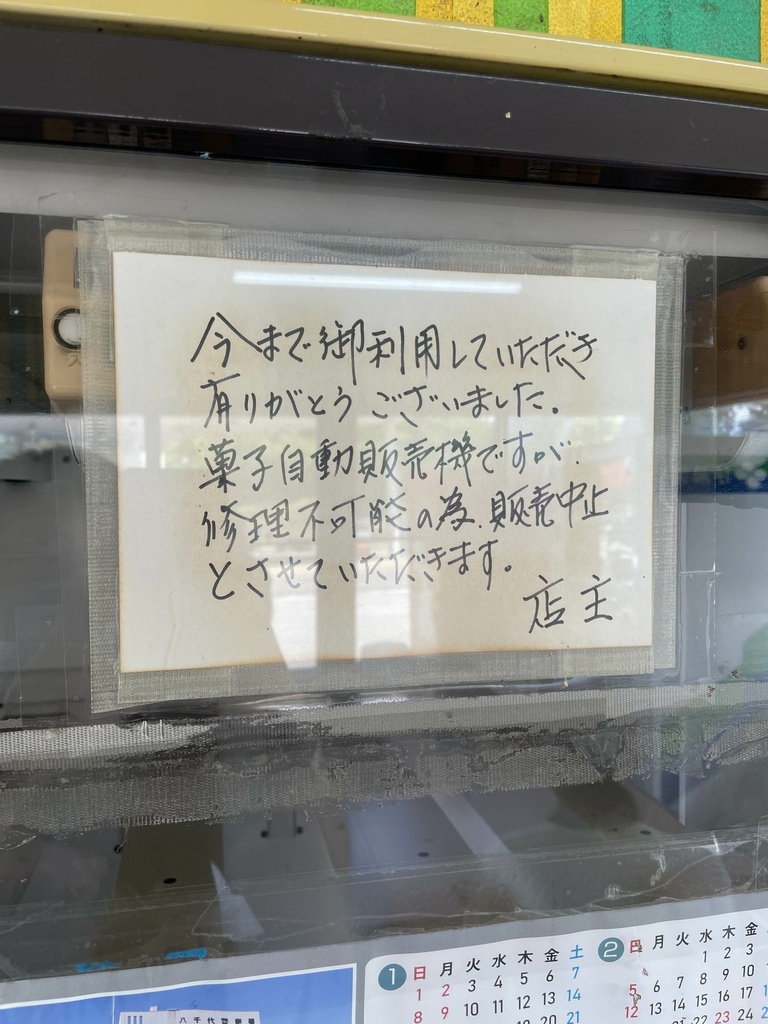 今まで御利用していただき
有りがとうございました。
菓子自動販売機ですが、
修理不可能の為、販売中止
とさせていただきます。
店主
1 日 月 火 水 木 金 土
1 2 3 4 5 6 7
8 9 10 11 12 13 14
19 20 21
2 日 月 火 水 木 金
1 2 3
5 6 7 8 9 10
12 13 14 15 16 17
22 23 24